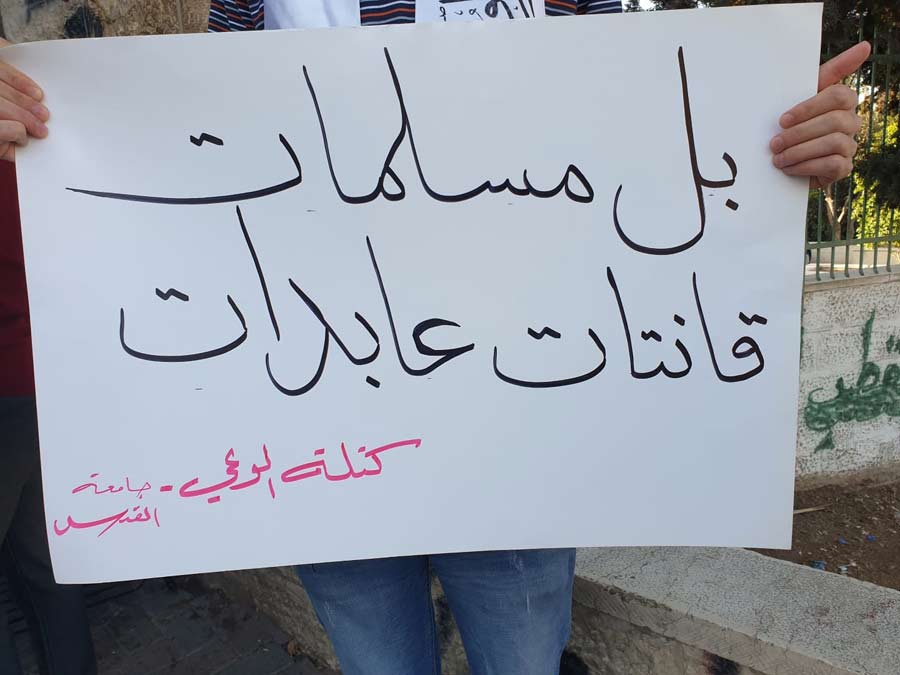 بل مسلمات
قانتات عابدات
كتلة الوعي - جامعة
القدس